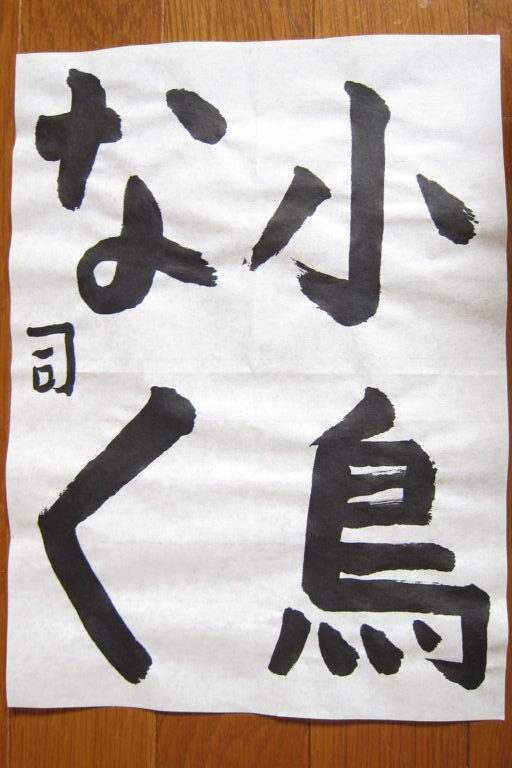 小鳥
なく
司